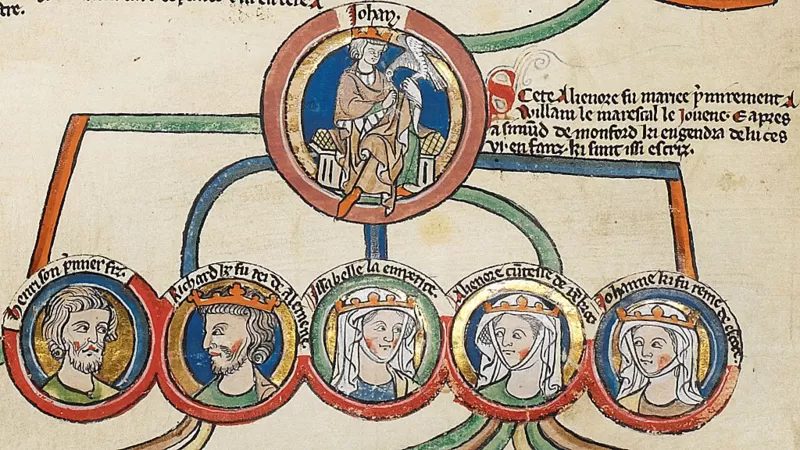 Johan.
Cete Alienore fu mariee p'mirement A
Willam le marescal le Jouene. E apres
a simud de monford ki engendra de lu ces
vi en fanz ki sunt issi escriz.
henri son p'mer fiz.
Richard ki fu rei de Alemene.
Issabelle la emperice.
Alienore cuntesse de
Johanne ki fu reine de escoce.